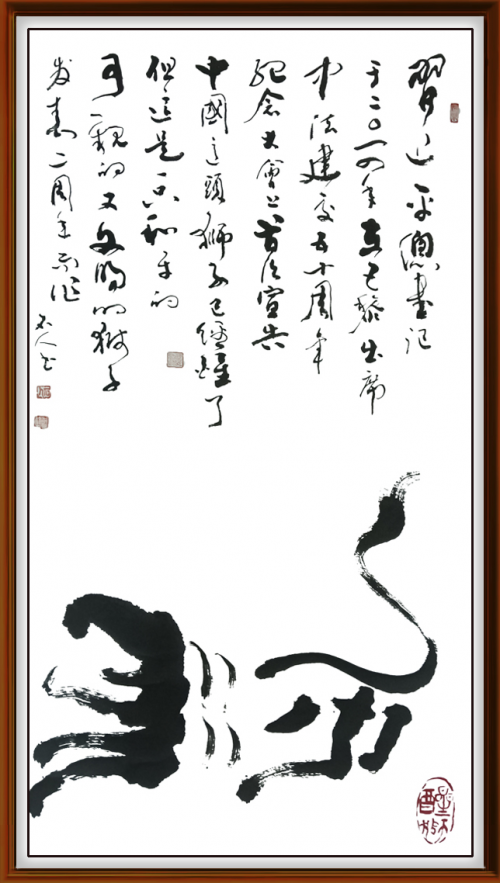 習近平總書記
于二〇一四年在巴黎出席
中法建交五十周年
紀念大會上首次宣告
中國這頭獅子已經醒了
但這是一只和平的
可親的又文明的獅子
发表二周年而作